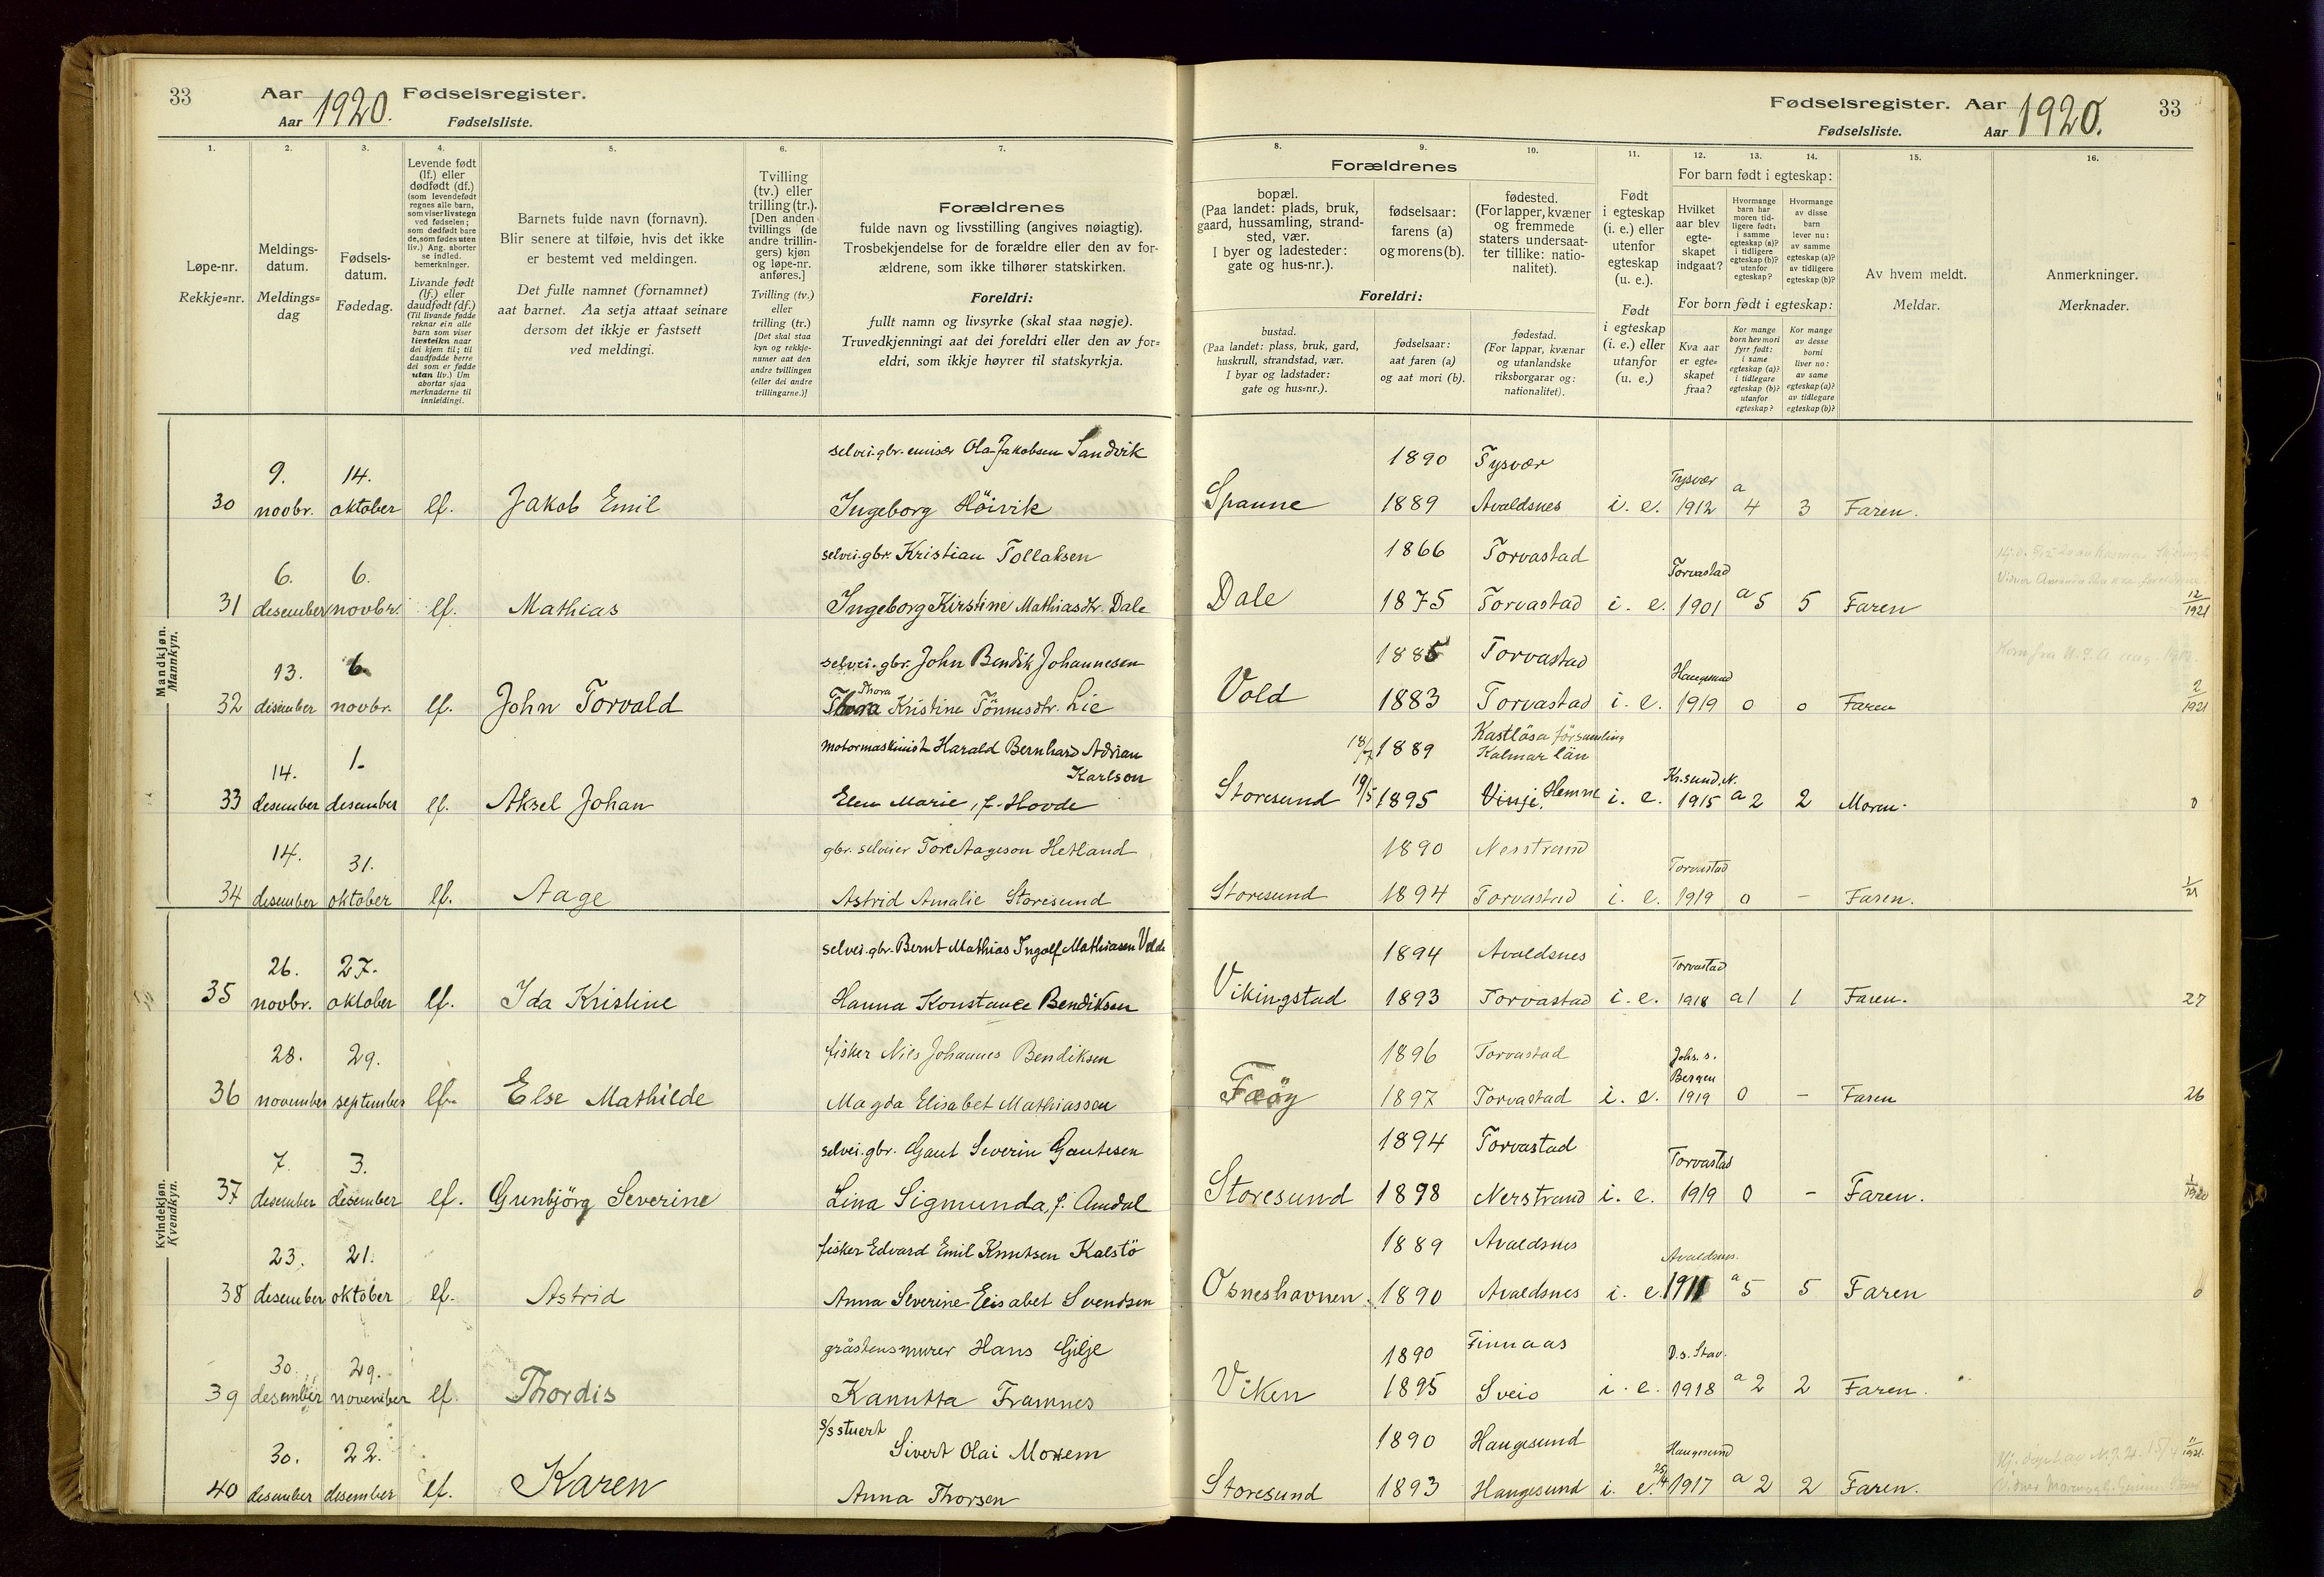 33 Aar 1920. Fødselsregister.
Aar Fødselsliste.
Fødselsregister. Aar 1920. 33
Fødselsliste. Aar
1. 2. 3. 4. 5. 6. 7.
Løpe-nr.
Rekkje=nr.
Meldings-
datum.
Meldings=
dag
Fødsels-
datum.
Fødedag.
Levende født
(lf.) eller
dødfødt (df.)
(som levendefødt
regnes alle barn,
som viser livstegn
ved fødselen;
som dødfødt bare
de, som fødes uten
liv.) Ang. aborter
se indled.
bemerkninger.
Livande født
(lf.) eller
daudfødt (df.)
(Til livande fødde
reknar ein alle
barn som viser
livsteikn naar
dei kjem til; til
daudfødde berre
dei som er fødde
utan liv.) Um
abortar sjaa
merknaderne til
innleidingi.
Barnets fulde navn (fornavn).
Blir senere at tilføie, hvis det ikke
er bestemt ved meldingen.
Det fulle namnet (fornamnet)
aat barnet. Aa setja attaat seinare
dersom det ikkje er fastsett
ved meldingi.
Tvilling
(tv.) eller
trilling (tr.).
[Den anden
tvillings (de
andre trillin-
gers) kjøn
og løpe-nr.
anføres.]
Tvilling (tv.)
eller
trilling (tr.)
[Det skal staa
kyn og rekkje-
numer aat den
andre tvillingen
(eller dei andre
trillingarne.)]
Forældrenes
fulde navn og livsstilling (angives nøiagtig).
Trosbekjendelse for de forældre eller den av for-
ældrene, som ikke tilhører statskirken.
Foreldri:
fullt namn og livsyrke (skal staa nøgje).
Truvedkjenningi aat dei foreldri eller den av for=
eldri, som ikkje høyrer til statskyrkja.
8. 9. 10. 11. 12. 13. 14. 15. 16.
Forældrenes
bopæl.
(Paa landet: plads, bruk,
gaard, hussamling, strand-
sted, vær.
I byer og ladesteder:
gate og hus-nr.).
fødselsaar:
farens (a)
og morens (b).
fødested.
(For lapper, kvæner
og fremmede
staters undersaat-
ter tillike: natio-
nalitet).
Foreldri:
bustad.
(Paa landet: plass, bruk, gard,
huskrull, strandstad, vær.
I byar og ladstader:
gate og hus=nr.).
fødselsaar:
aat faren (a)
og aat mori (b).
fødestad.
(For lappar, kvænar
og utanlandske
riksborgarar og:
nationalitet).
Født
i egteskap
(i. e.) eller
utenfor
egteskap
(u. e.).
Født
i egteskap
(i. e.) eller
utanfor
(u. e.)
For barn født i egteskap:
Hvilket
aar blev
egte-
skapet
indgaat?
Hvormange
barn har
moren tid-
ligere født:
i samme
egteskap (a)?
i tidligere
egteskap (b)?
utenfor
egteskap?
Hvormange
av disse
barn
lever nu:
av samme
egteskap (a)?
av tidligere
egteskap (b)?
For born født i egteskap:
Kva aar
er egte=
skapet
fraa?
Kor mange
born hev mori
fyrr født:
i same
egteskap (a)?
i tidlegare
egteskap (b)?
utanfor
egteskap?
Kor mange
av desse
borni
liver no:
av same
egteskap (a)?
av tidlegare
egteskap (b)?
Av hvem meldt.
Meldar.
Anmerkninger.
Merknader.
Mandkjøn.
Mannkyn.
selvei.gbr. emisær Ola Jakobsen Sandvik 1890 Tysvær
30 9. novbr. 14. oktober lf. Jakob Emil Ingeborg Høivik Spanne 1889 Avaldsnes i. e. Tysvær 1912 a 4 3 Faren.
selvei.gbr. Kristian Tollaksen 1866 Torvastad
31 6. desember 6. novbr. lf. Mathias Ingeborg Kirstine Mathiasdtr. Dale Dale 1875 Torvastad i. e. Torvastad 1901 a 5 5 Faren 12/1921
selvei.gbr. John Bendik Johannesen 1885 Torvastad
32 13. desember 6 novbr. lf. John Torvald Thora Thora Kristine Tönnesdtr. Lie Vold 1883 Torvastad i. e. Haugesund 1919 0 0 Faren 2/1921
motormaskinist Harald Bernhard Adrian Karlson 18/7 1889 Kastlösa församling Kalmar län
33 14. desember 1. desember lf. Aksel Johan Elen Marie, f. Hovde Storesund 19/5 1895 Vinje, Hemne i. e. Kr.sund.N. 1915 a 2 2 Moren. 0
gbr. selveier Tore Aageson Hetland 1890 Nerstrand
34 14. desember 31. oktober lf. Aage Astrid Amalie Storesund Storesund 1894 Torvastad i. e. Torvastad 1919 0 – Faren. 1/21
Kvindekjøn.
Kvendkyn.
selvei.gbr. Bernt Mathias Ingolf Mathiasen Velde 1894 Avaldsnes
35 26. novbr. 27. oktober lf. Ida Kristine Hanna Konstance Bendiksen Vikingstad 1893 Torvastad i. e. Torvastad 1918 a 1 1 Faren. 27
fisker Nils Johannes Bendiksen 1896 Torvastad
36 28. november 29. september lf. Else Mathilde Magda Elisabet Mathiassen Fæöy 1897 Torvastad i. e. Johs. s. Bergen 1919 0 – Faren 26
selvei.gbr. Gaut Severin Gautesen 1894 Torvastad
37 7. desember 3. desember lf. Gunbjörg Severine Lina Sigmunda, f. Amdal Storesund 1898 Nerstrand i. e. Torvastad 1919 0 – Faren. 1/1920
fisker Edvard Emil Knutsen Kalstö 1889 Avaldsnes
38 23. desember 21. oktober lf. Astrid Anna Severine Elisabet Svendsen Osneshavnen. 1890 Avaldsnes i. e. Avaldsnes. 1911 a 5 5 Faren 0
gråstensmurer Hans Gilje 1890 Finnaas
39 30. desember 29. november lf. Thordis Kanutta Framnes Viken 1895 Sveio i. e. D.s. Stav. 1918 a 2 2 Faren.
s/s stuert Sivert Olai Moxem 1890 Haugesund
40 30. desember 22. desember lf. Karen Anna Thorsen Storesund 1893 Haugesund i. e. Haugesund 25/4 1917 a 2 2 Faren. 11/1921.